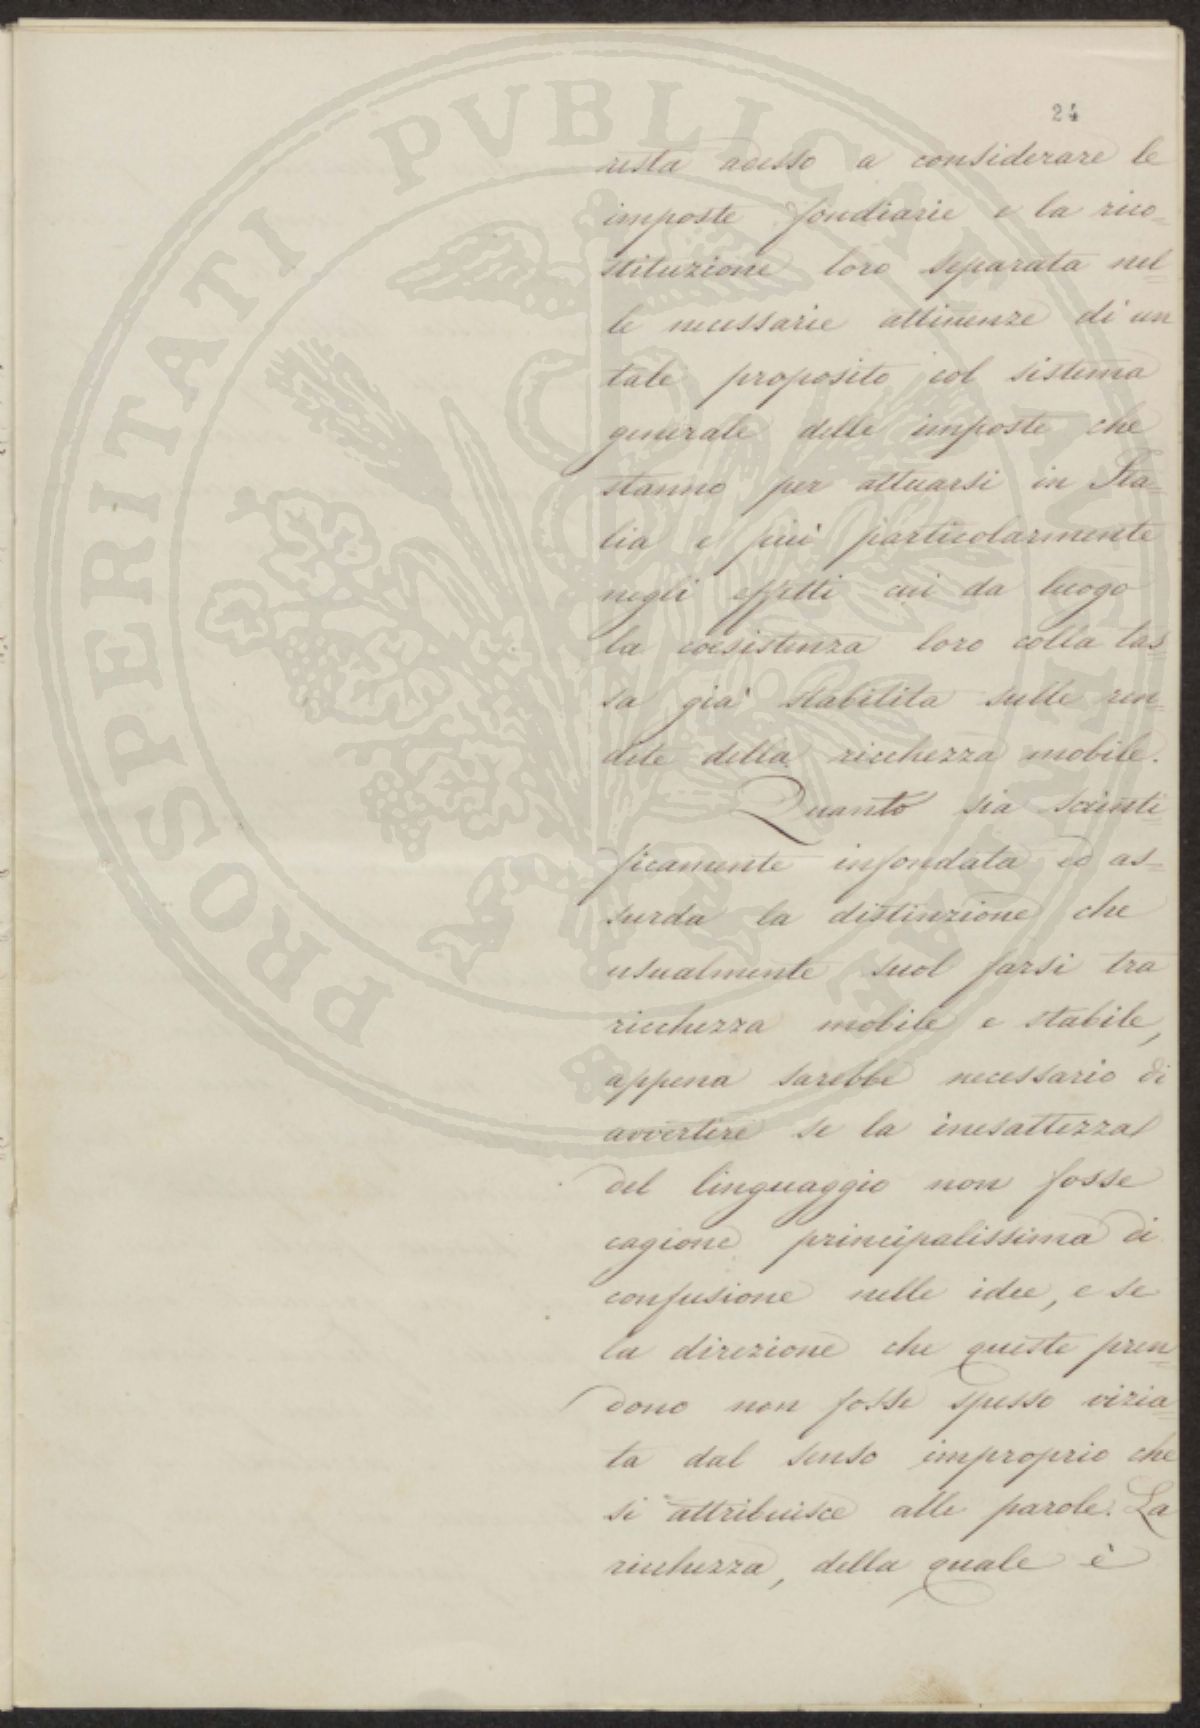 24
resta adesso a considerare le
imposte fondiarie e la rico=
stituzione loro separata nel=
le necessarie attinenze di un
tale proposito col sistema
generale delle imposte che
stanno per attuarsi in Ita=
lia e più particolarmente
negli effetti cui da luogo
la coesistenza loro colla tas=
sa già stabilita sulle ren=
dite della ricchezza mobile.
Quanto sia scienti=
ficamente infondata ed as=
surda la distinzione che
usualmente suol farsi tra
ricchezza mobile e stabile,
appena sarebbe necessario di
avvertire se la inesattezza
del linguaggio non fosse
cagione principalissima di
confusione nelle idee, e se
la direzione che queste pren=
dono non fosse spesso vizia=
ta dal senso improprio che
si attribuisce alle parole. La
ricchezza, della quale è
PROSPERITATI PVBLICAE AVGENDAE